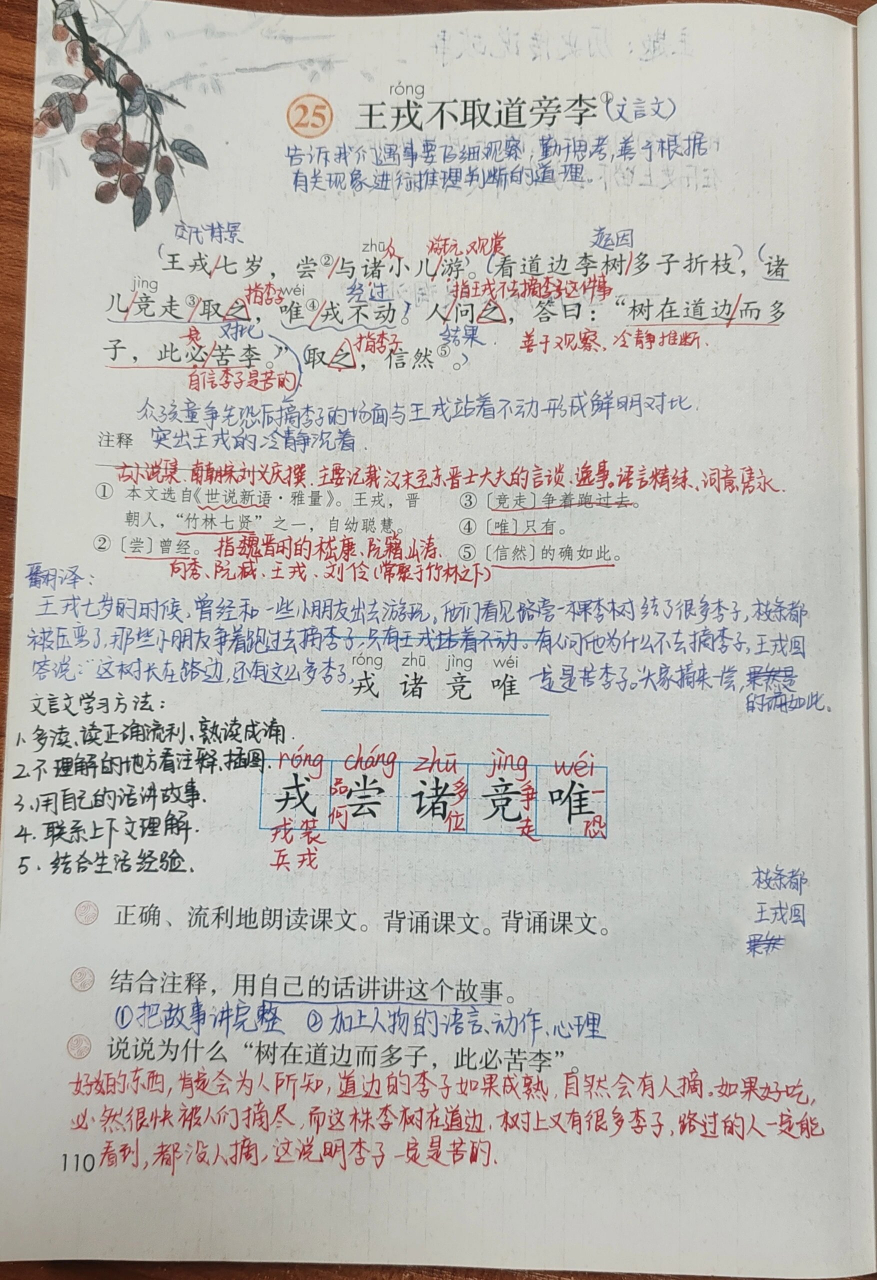 róng
25 王戎不取道旁李①(文言文)
告诉我们遇事要仔细观察,勤于思考,善于根据
有关现象进行推理判断的道理。
交代背景 起因
zhū 众 游玩、观赏
(王戎/七岁,尝②/与诸小儿/游。(看道边李树/多子折枝),(诸
jìng 指李子 wéi 经过 指王戎不去摘李子这件事
儿/竞走③/取之,唯④/戎不动。人问之,答曰:“树在道边/而多
是 对比 指李子 结果 善于观察、冷静推断.
子,此必/苦李。”(取之,信然⑤。)
自信李子是苦的
众孩童争先恐后摘李子的场面与王戎站着不动形成鲜明对比.
注释 突出王戎的冷静沉着.
古小说集.南朝宋刘义庆撰.主要记载汉末至东晋士大夫的言谈、逸事。语言精练、词意隽永.
① 本文选自《世说新语·雅量》。王戎,晋
朝人,“竹林七贤”之一,自幼聪慧。
② 〔尝〕曾经。 指魏晋时的嵇康、阮籍、山涛、
向秀、阮咸、王戎、刘伶(常聚于竹林之下)
③ 〔竞走〕争着跑过去。
④ 〔唯〕只有。
⑤ 〔信然〕的确如此。
翻译:
王戎七岁的时候,曾经和一些小朋友出去游玩,他们看见路旁一棵李树结了很多李子,枝条都
被压弯了,那些小朋友争着跑过去摘李子,只有王戎站着不动。有人问他为什么不去摘李子,王戎回
答说:“这树长在路边,还有这么多李子, 一定是苦李子。”大家摘来一尝,果然是
的确如此。
róng zhū jìng wéi
戎 诸 竞 唯
文言文学习方法:
1.多读、读正确流利、熟读成诵.
2.不理解的地方看注释、插图.
3.用自己的话讲故事.
4.联系上下文理解.
5.结合生活经验.
róng cháng zhū jìng wéi
戎 尝 诸 竞 唯
戎装 品 多 争 一
兵戎 何 位 走 恐
枝条都
王戎回
果然
正确、流利地朗读课文。背诵课文。背诵课文。
结合注释,用自己的话讲讲这个故事。
①把故事讲完整 ②加上人物的语言、动作、心理
说说为什么“树在道边而多子,此必苦李”。
好的东西,肯定会为人所知,道边的李子如果成熟,自然会有人摘。如果好吃,
必然很快被人们摘尽,而这株李树在道边,树上又有很多李子,路过的人一定能
看到,都没人摘,这说明李子一定是苦的.
110